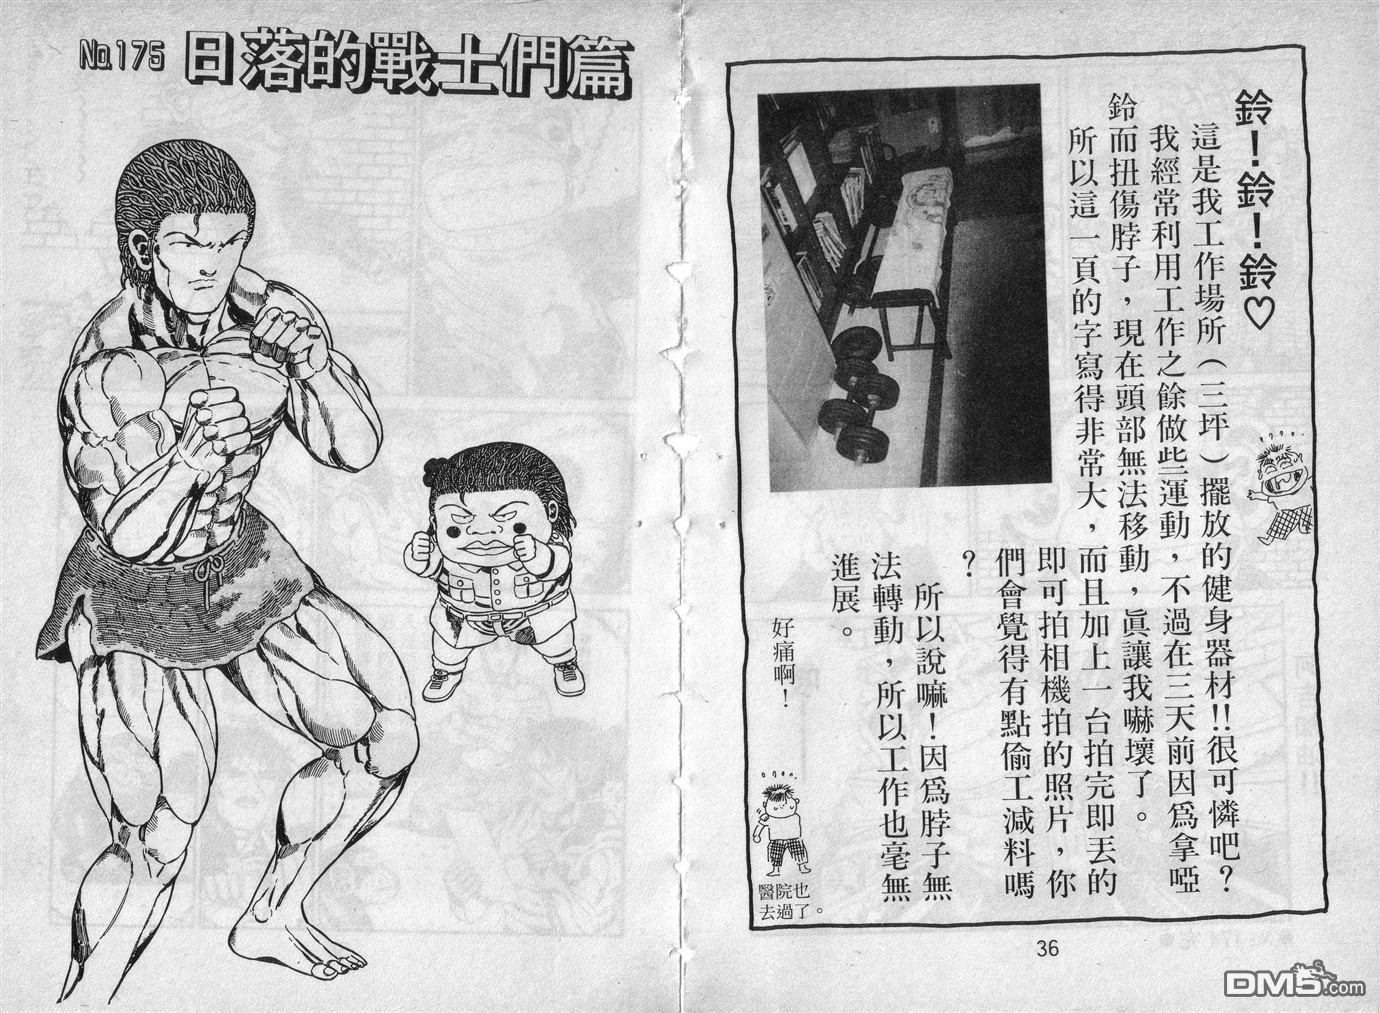 鈴！鈴！鈴♡
這是我工作場所（三坪）擺放的健身器材!!很可憐吧？
我經常利用工作之餘做些運動，不過在三天前因為拿啞
鈴而扭傷脖子，現在頭部無法移動，真讓我嚇壞了。
所以這一頁的字寫得非常大，而且加上一台拍完即丟的
即可拍相機拍的照片，你
們會覺得有點偷工減料嗎
？
所以說嘛！因為脖子無
法轉動，所以工作也毫無
進展。
好痛啊！
醫院也
去過了。
36
No.175 日落的戰士們篇
DM5.com